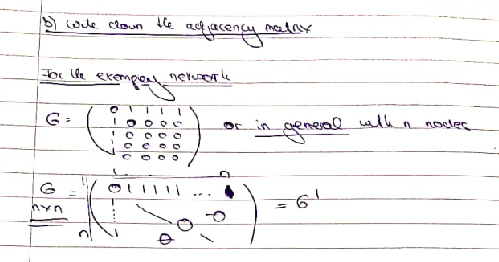 b) write down the adjacency matrix
For the exemplary network
G = ( 0 1 1 1 1
1 0 0 0 0
1 0 0 0 0
1 0 0 0 0
1 0 0 0 0 ) or in general with n nodes
1 ... n
G = 1 ( 0 1 1 1 1 1 ... 1 ) = G'
n×n 0 0
n 1 0